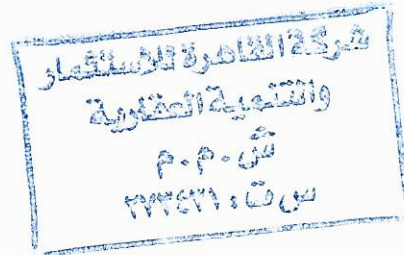 شركة القاهرة للاستثمار
والتنمية العقارية
ش.م.م
س ت : ٣٧٣٤٣١